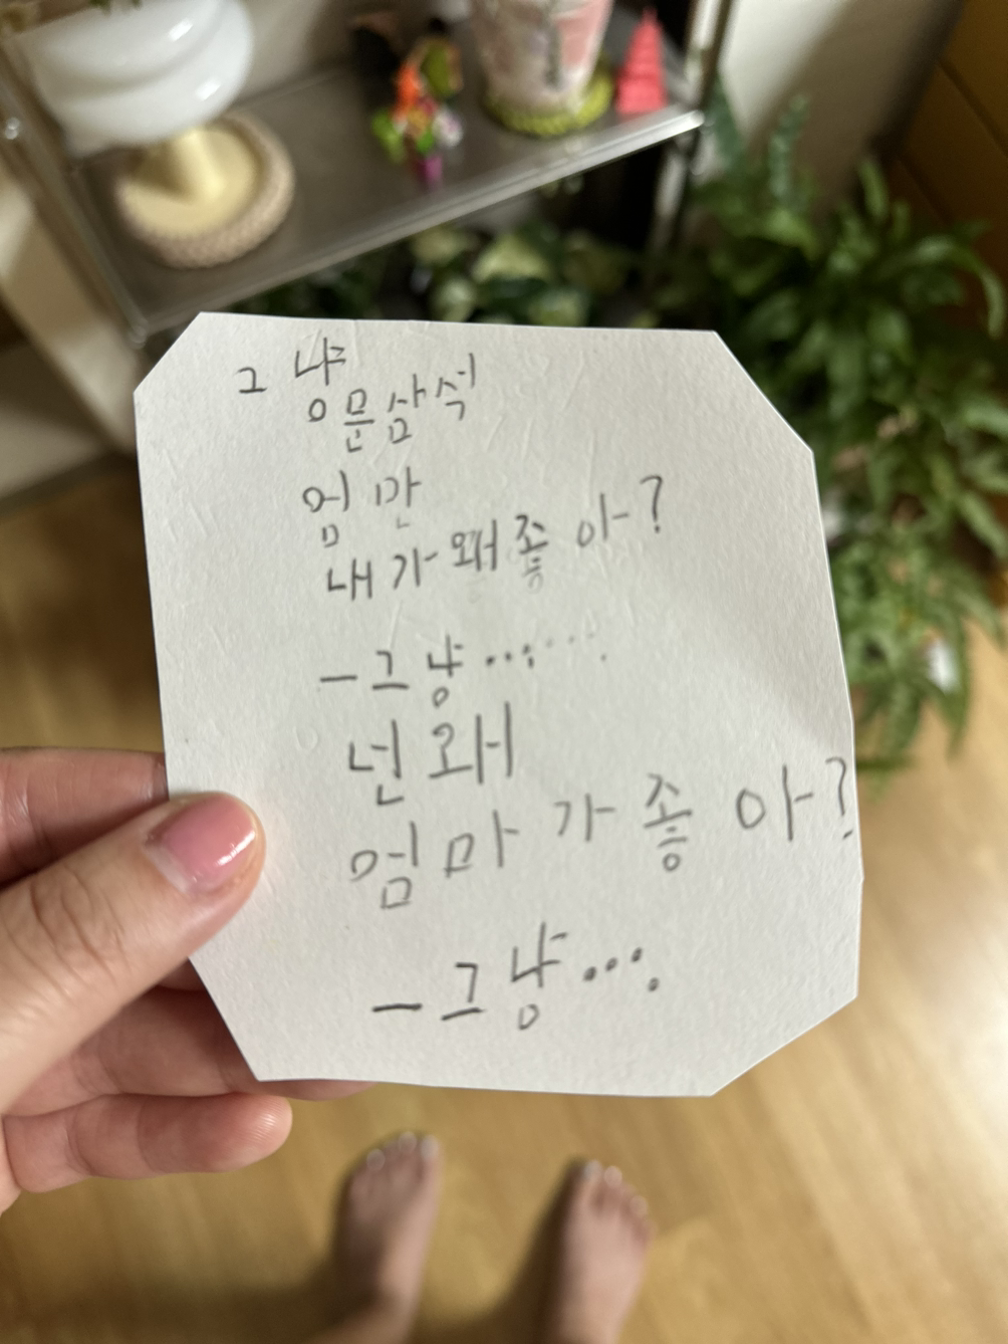 그냥
문삼석
엄만
내가 왜 좋아?
-그냥......
넌 왜
엄마가 좋아?
-그냥....